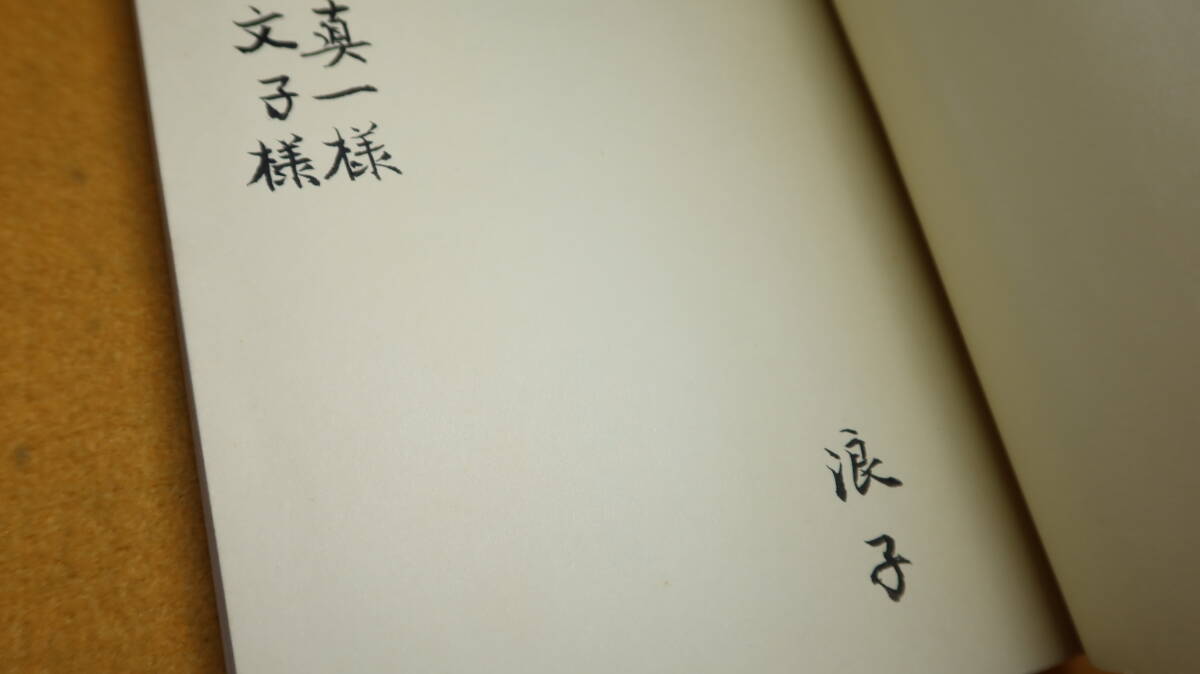 真一様
文子様
浪子